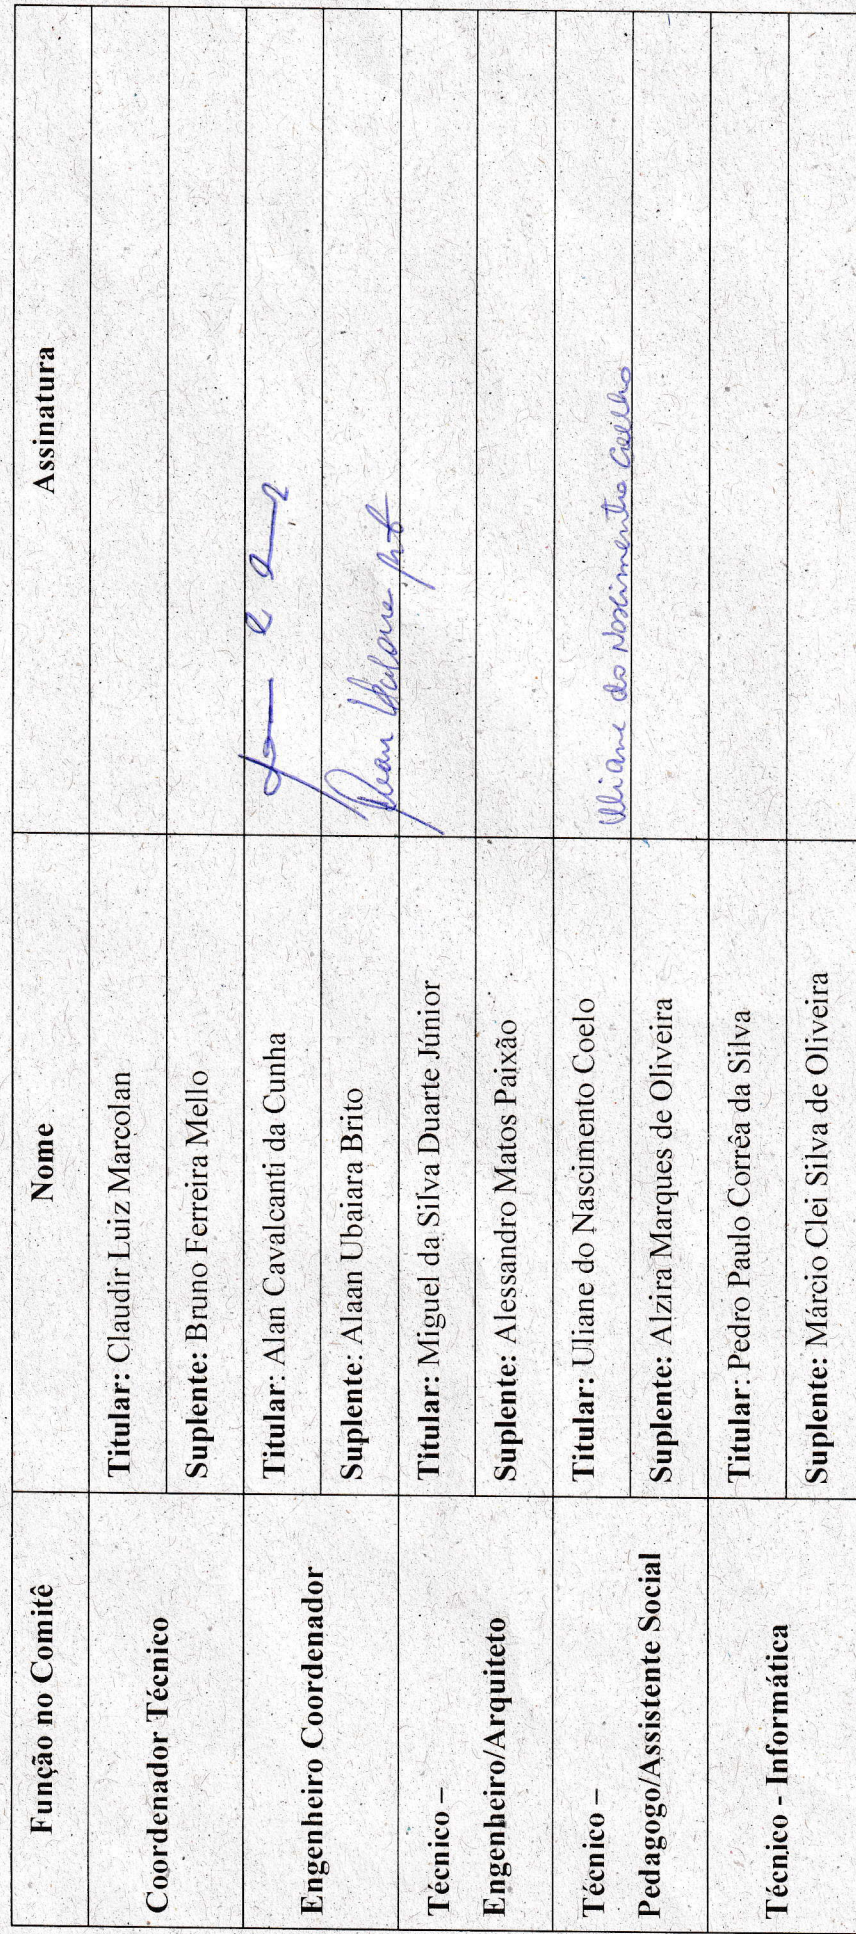 Função no Comitê
Nome
Assinatura
Coordenador Técnico
Titular: Claudir Luiz Marcolan
Suplente: Bruno Ferreira Mello
Engenheiro Coordenador
Titular: Alan Cavalcanti da Cunha
Suplente: Alaan Ubaiara Brito
Técnico –
Engenheiro/Arquiteto
Titular: Miguel da Silva Duarte Júnior
Suplente: Alessandro Matos Paixão
Técnico –
Pedagogo/Assistente Social
Titular: Uliane do Nascimento Coelo
Uliane do Nascimento Coelho
Suplente: Alzira Marques de Oliveira
Técnico - Informática
Titular: Pedro Paulo Corrêa da Silva
Suplente: Márcio Clei Silva de Oliveira